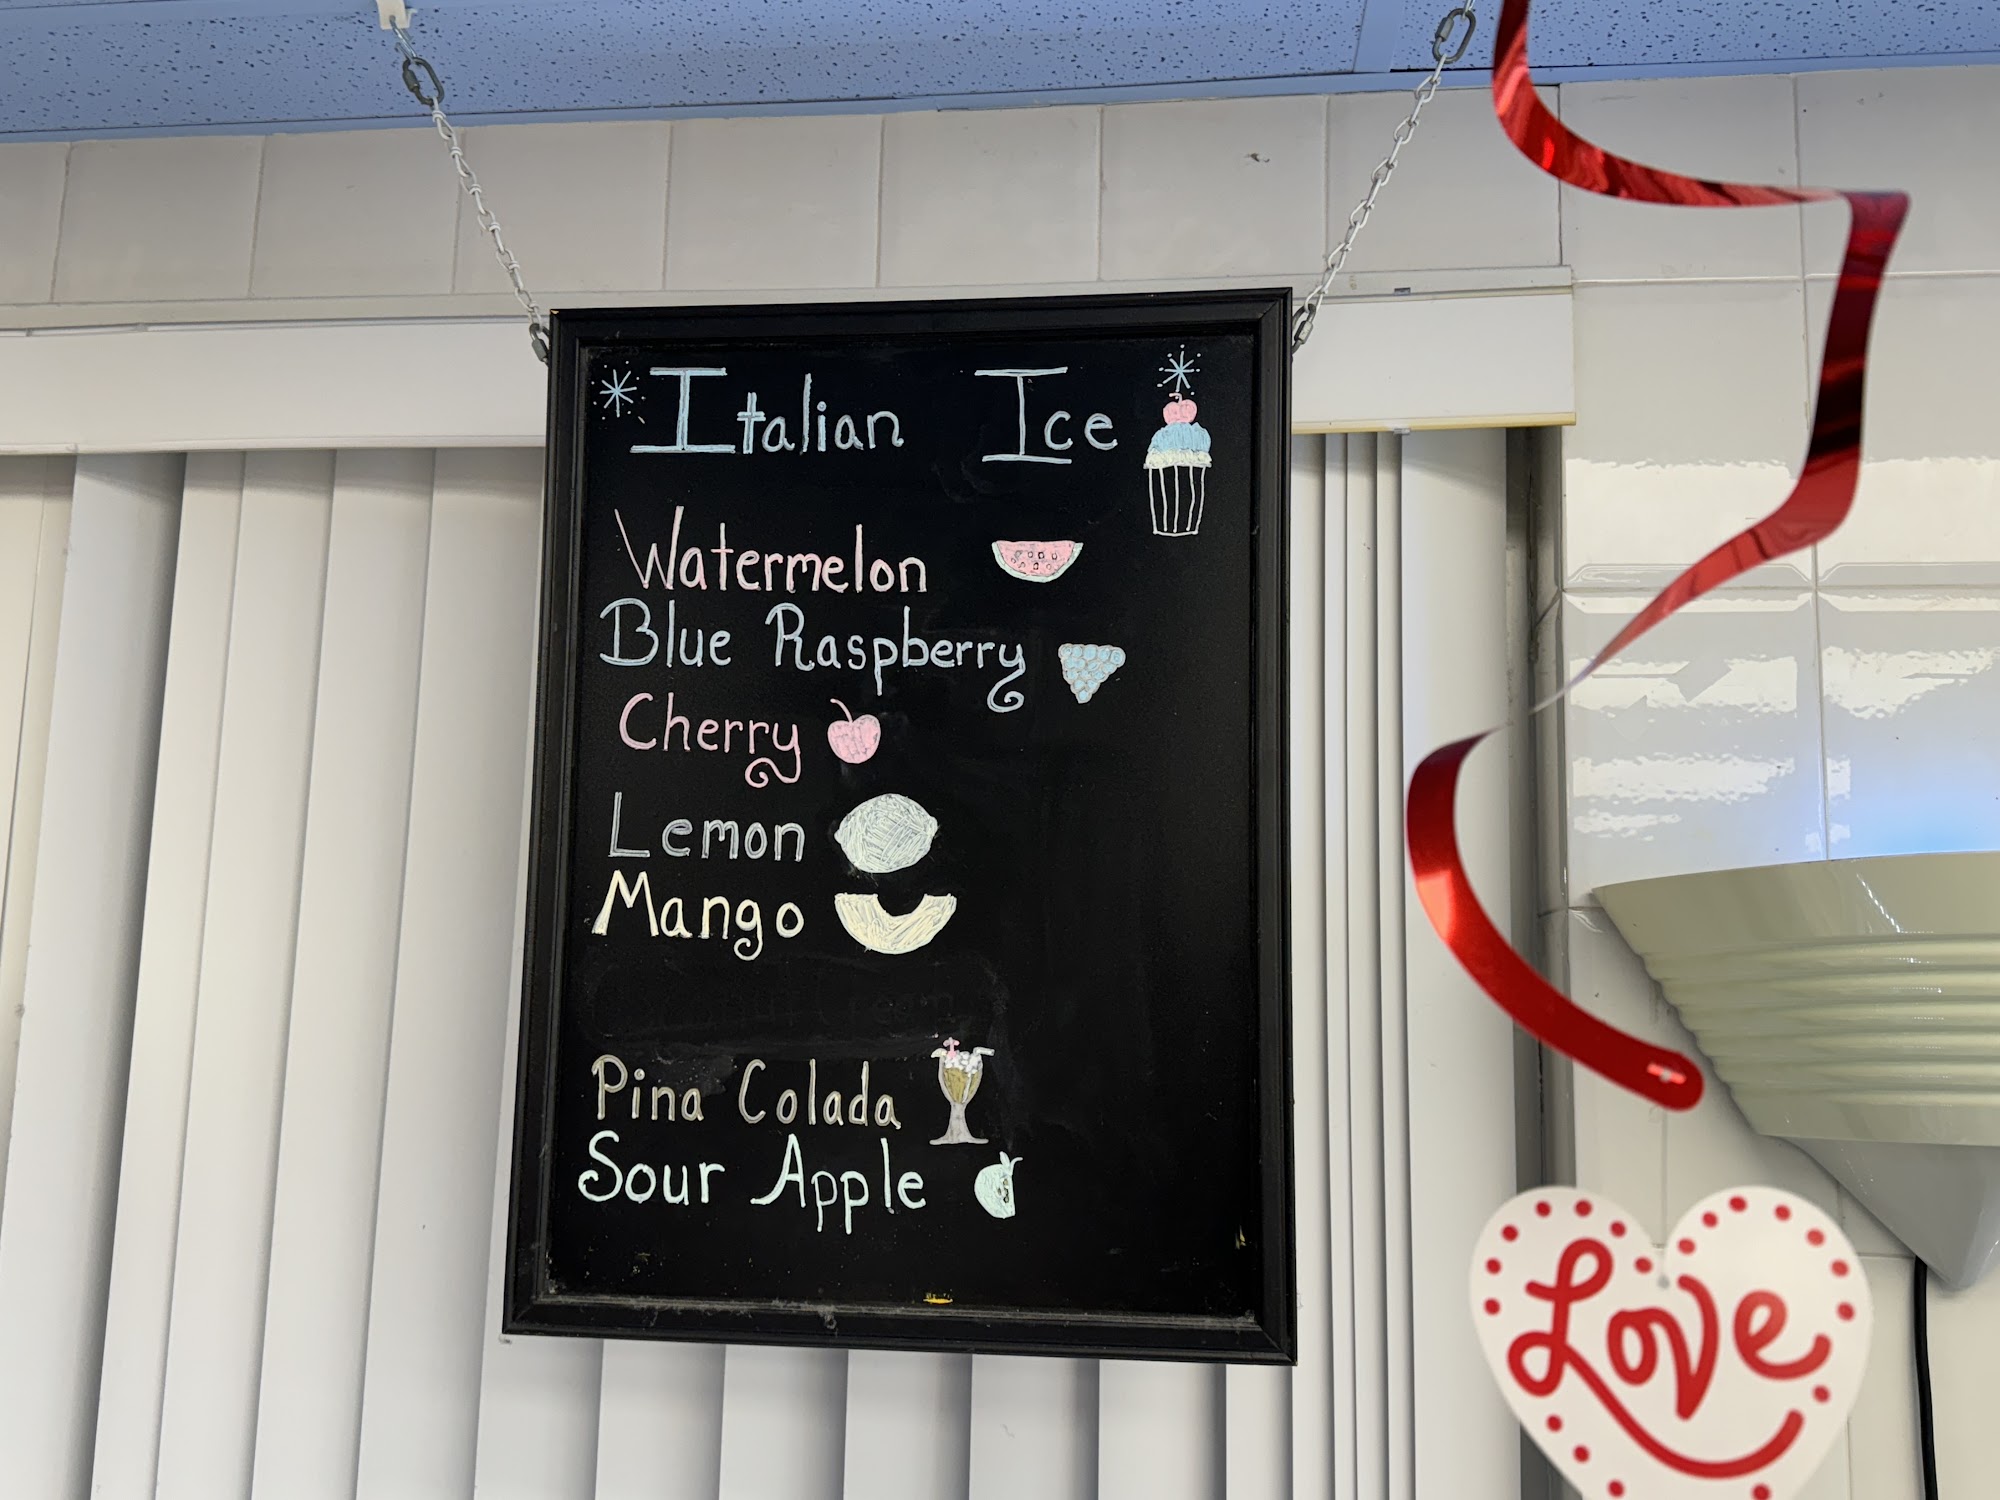 Italian Ice
Watermelon
Blue Raspberry
Cherry
Lemon
Mango
Pina Colada
Sour Apple
Love